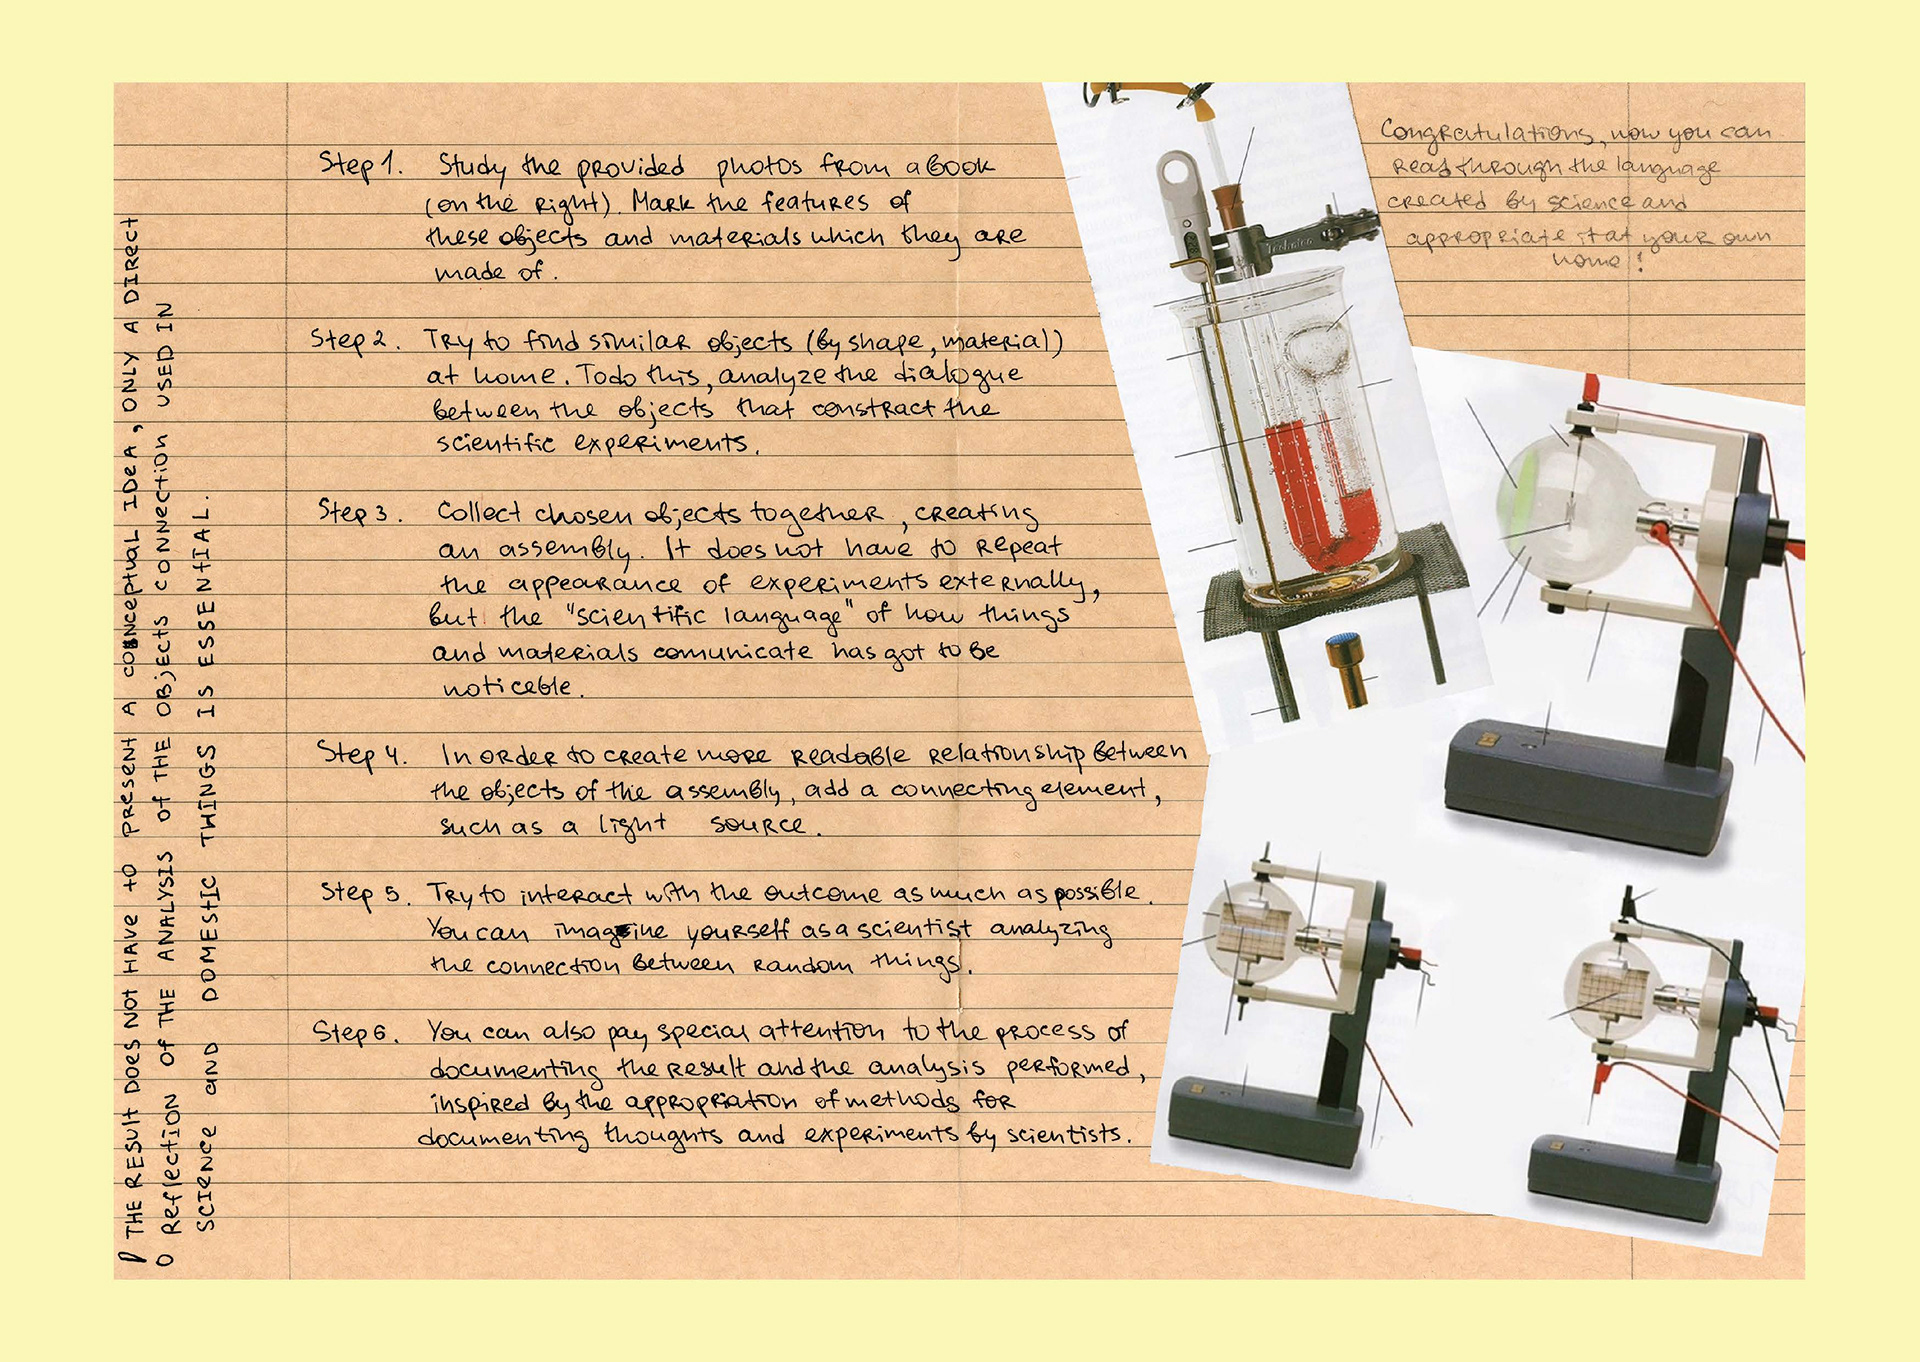 Step 1. Study the provided photos from a book
(on the right). Mark the features of
these objects and materials which they are
made of.
Step 2. Try to find similar objects (by shape, material)
at home. To do this, analyze the dialogue
between the objects that constract the
scientific experiments.
Step 3. Collect chosen objects together, creating
an assembly. It does not have to repeat
the appearance of experiments externally,
but the "scientific language" of how things
and materials comunicate has got to be
noticeble.
Step 4. In order to create more readable relationship between
the objects of the assembly, add a connecting element,
such as a light source.
Step 5. Try to interact with the outcome as much as possible.
You can imagine yourself as a scientist analyzing
the connection between random things.
Step 6. You can also pay special attention to the process of
documenting the result and the analysis performed,
inspired by the appropriation of methods for
documenting thoughts and experiments by scientists.
THE RESULT DOES NOT HAVE TO PRESENT A CONCEPTUAL IDEA, ONLY A DIRECT
REFLECTION OF THE ANALYSIS OF THE OBJECTS CONNECTION USED IN
SCIENCE AND DOMESTIC THINGS IS ESSENTIAL.
Congratulations, now you can
read through the language
created by science and
appropriate it at your own
home!